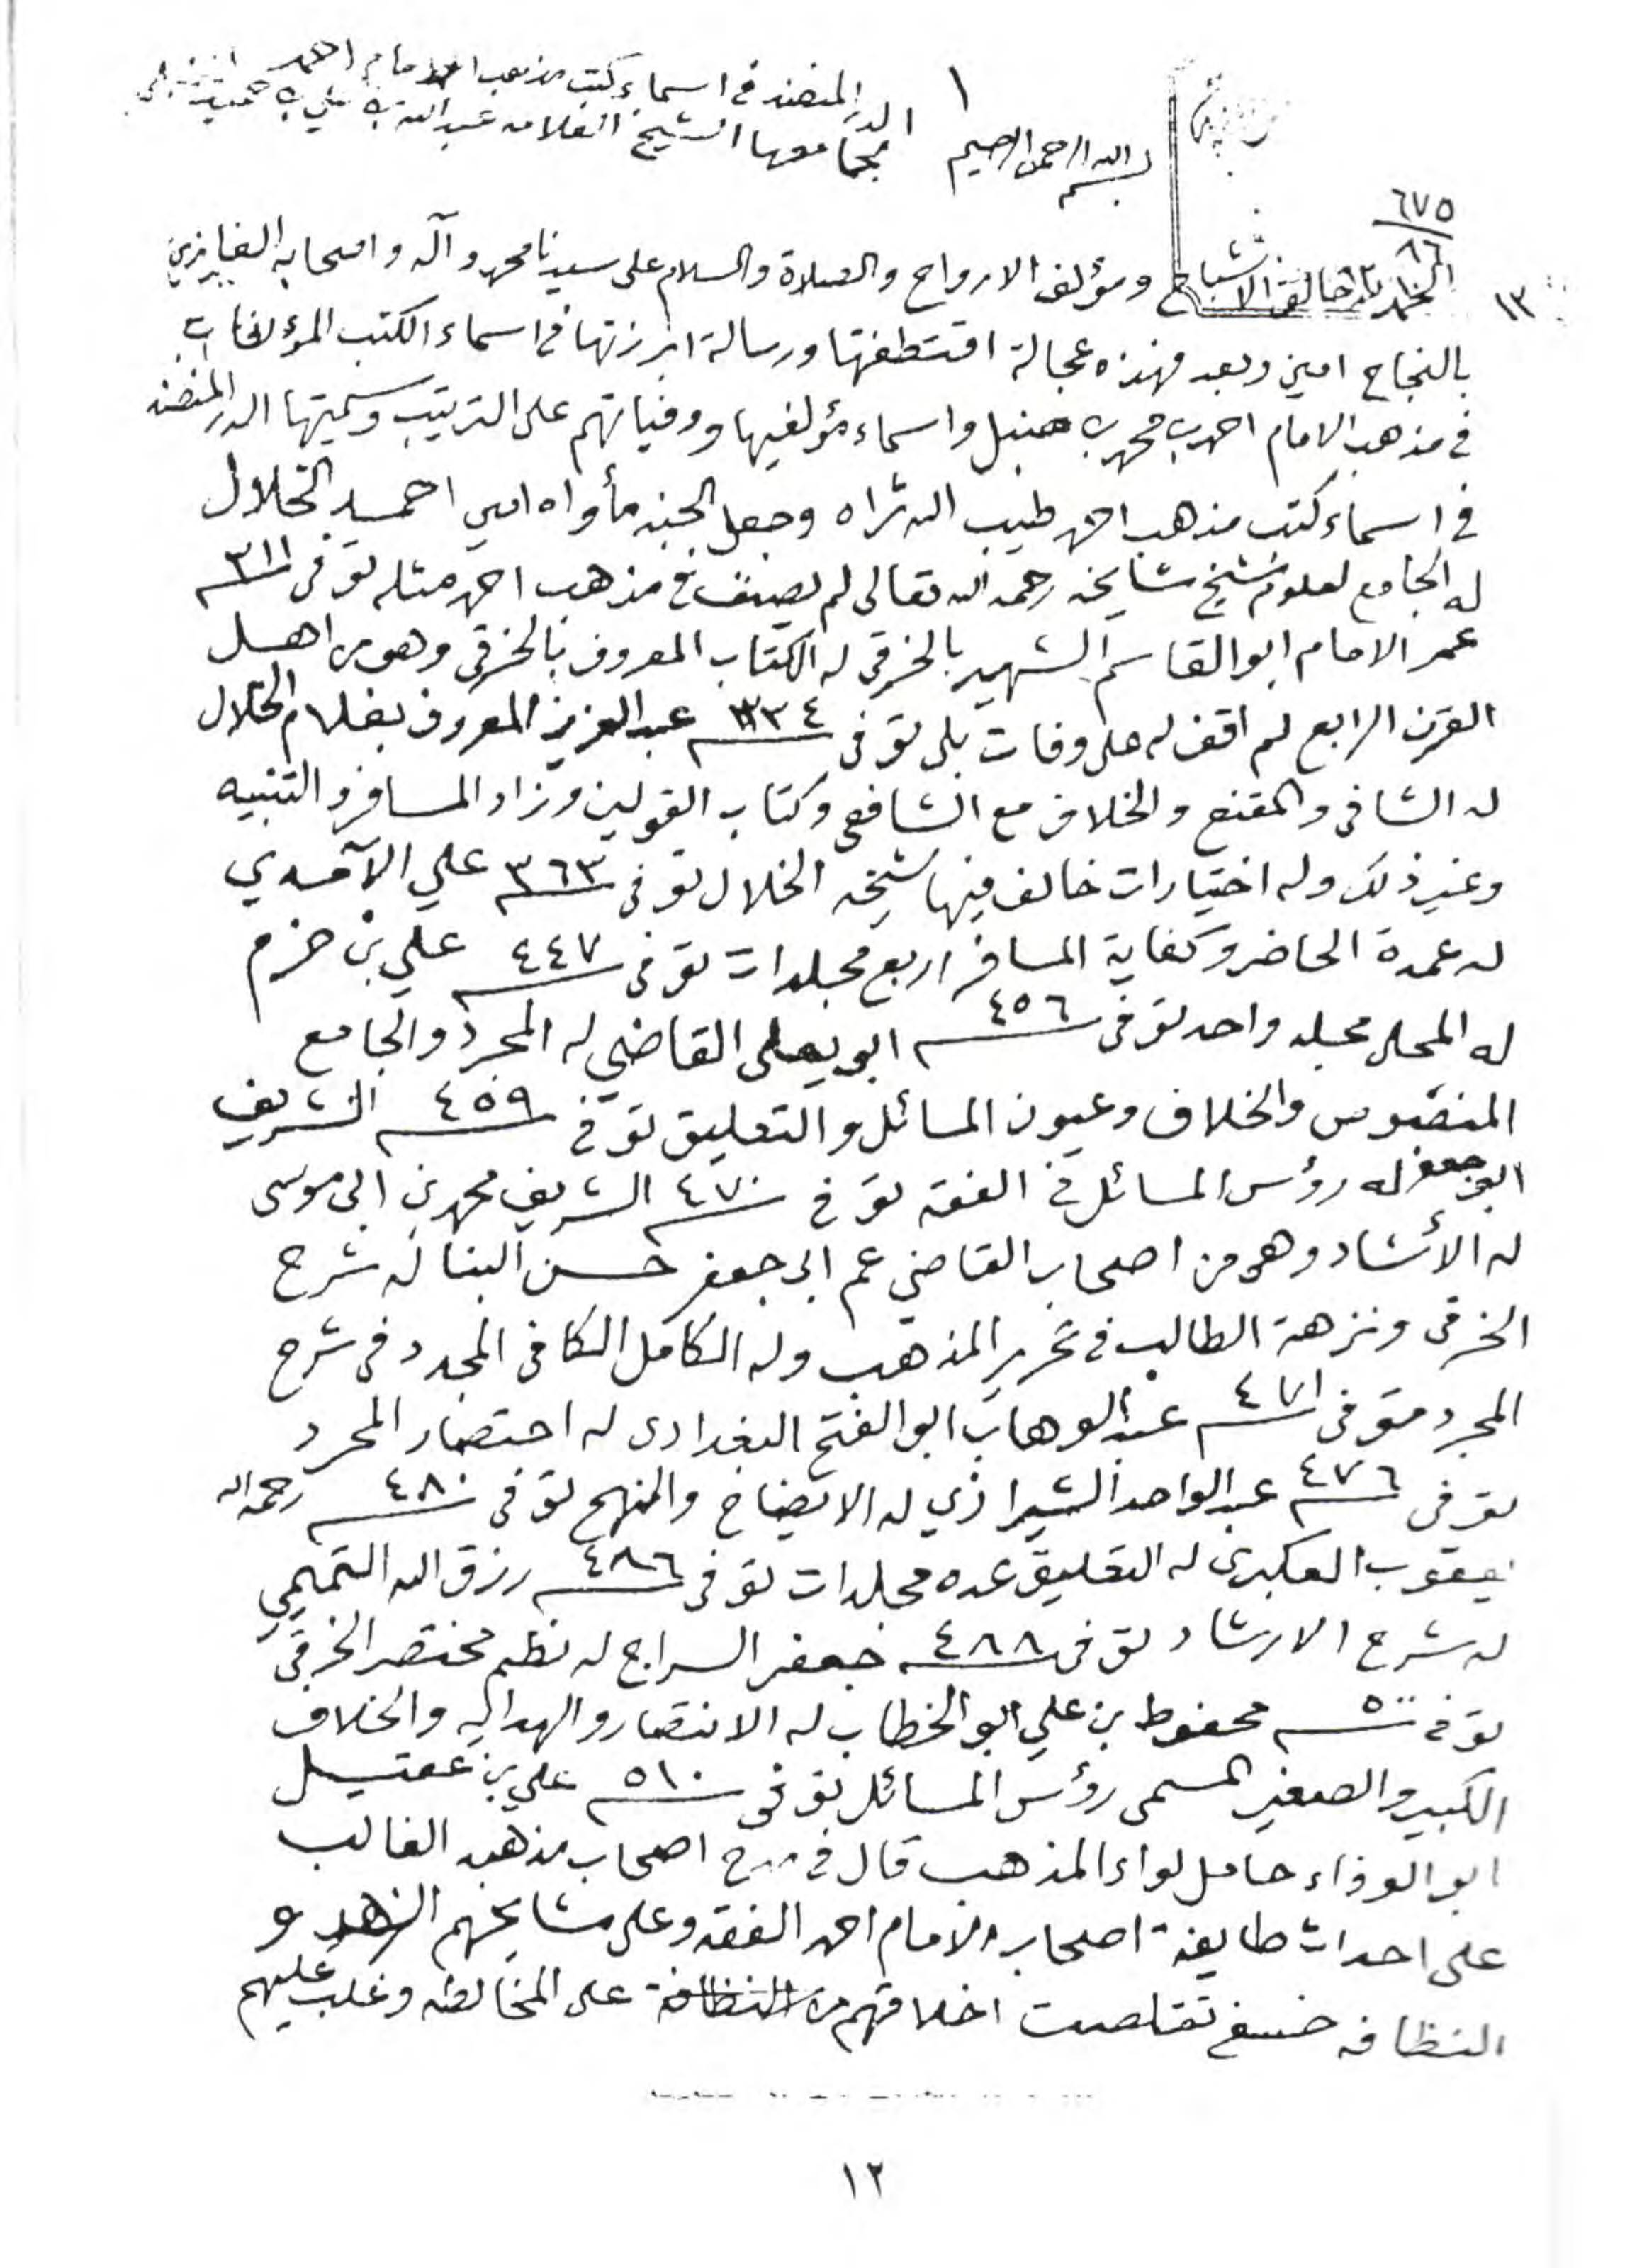 الدر المنضد في اسماء كتب مذهب الامام احمد
لجامعها الشيخ العلامه عبد الله بن علي بن حميد
١
بسم الله الرحمن الرحيم
٦٧٥
٨٦
١٣
الحمد لله خالق الاشباح ومؤلف الارواح والصلاة والسلام على سيدنا محمد وآله واصحابه الفايزين
بالنجاح امين وبعد فهذه عجالة اقتطفتها ورسالة ابرزتها في اسماء الكتب المؤلفات
في مذهب الامام احمد بن محمد بن حنبل واسماء مؤلفيها ووفياتهم على الترتيب وسميتها الدر المنضد
في اسماء كتب مذهب احمد طيب الله ثراه وجعل الجنه مأواه امين احمد الخلال
له الجامع لعلوم شيخ مشايخه رحمه الله تعالى لم يصنف في مذهب احمد مثله توفى ٣١١
عمر الامام ابو القاسم الشهير بالخرقي له الكتاب المعروف بالخرقي وهو من اهل
القرن الرابع لم اقف له على وفات بلى توفى ٣٣٤ عبد العزيز المعروف بغلام الخلال
له الشافي والمقنع والخلاف مع الشافعي وكتاب القولين وزاد المسافر والتنبيه
وغير ذلك وله اختيارات خالف فيها شيخه الخلال توفى ٣٦٣ علي الآمدي
له عمدة الحاضر وكفاية المسافر اربع مجلدات توفى ٤٤٧ علي بن حزم
له المحلى مجلد واحد توفى ٤٥٦ ابو يعلى القاضي له المجرد والجامع
المنصوص والخلاف وعيون المسائل والتعليق توفي ٤٥٩ الشريف
ابو جعفر له رؤس المسائل في الفقه توفي ٤٧٠ الشريف محمد بن ابي موسى
له الأرشاد وهو من اصحاب القاضي عم ابى جعفر حسن البنا له شرح
الخرقي ونزهة الطالب في تحرير المذهب وله الكامل الكافي المجدد في شرح
المجرد متوفى ٤٧١ عبد الوهاب ابو الفتح البغدادى له اختصار المجرد
توفى ٤٧٦ عبد الواحد الشيرازي له الايضاح والمنهج توفى ٤٨٠ رحمه الله
يعقوب العكبرى له التعليق عده مجلدات توفى ٤٨٦ رزق الله التميمي
له شرح الارشاد توفى ٤٨٨ جعفر السراج له نظم مختصر الخرقي
توفي ٥٠٠ محفوظ بن علي ابو الخطاب له الانتصار والهدايه والخلاف
الكبير والصغير المسمى رؤس المسائل توفى ٥١٠ علي بن عقيل
ابو الوفاء حامل لواء المذهب قال في مدح اصحاب مذهبه الغالب
على احداث طايفة اصحاب الامام احمد الفقه وعلى مشايخهم الزهد و
النظافه تقلصت اخلاقهم من النظافة على المخالطه وغلب عليهم
١٢